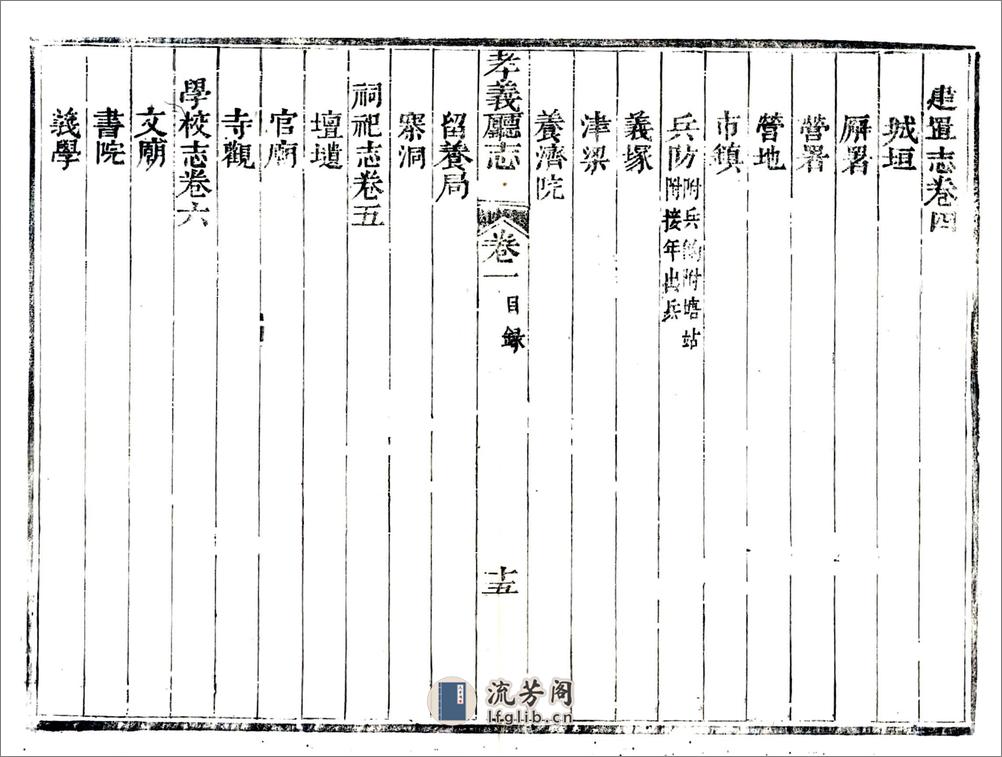 建置志卷四
城垣
廨署
營署
營地
市鎮
兵防附兵餉附塘站
附接年出兵
義塚
津梁
養濟院
孝義廳志
卷一
目錄
十五
留養局
寨洞
祠祀志卷五
壇壝
官廟
寺觀
學校志卷六
文廟
書院
義學
流芳阁
lfglib.cn